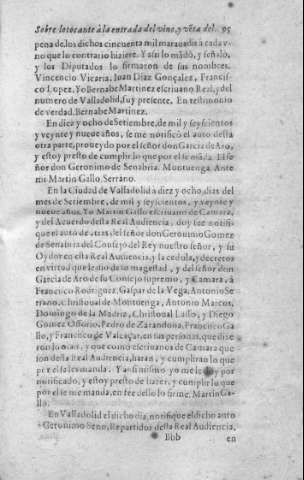 Sobre lo tocante à la entrada del vino, y vẽta del. 95
pena de los dichos cincuenta mil marauedis à cada v-
no que lo contrario hiziere. Y assi lo mãdò, y señalò,
y los Diputados lo firmaron de sus nombres.
Vincencio Vicaria. Iuan Diaz Gonçalez, Francis-
co Lopez. Yo Bernabe Martinez escriuano Real, y del
numero de Valladolid, fuy presente. En testimonio
de verdad. Bernabe Martinez.
En diez y ocho de Setiembre, de mil y seyscientos
y veynte y nueue años, se me notificò el auto desta
otra parte, proueydo por el señor don Garcia de Aro,
y estoy presto de cumplir lo que por el se mãda. El se-
ñor don Geronimo de Senabria. Montuenga. Ante
mi Martin Gallo. Serrano.
En la Ciudad de Valladolid a diez y ocho, dias del
mes de Setiembre, de mil y seyscientos, y veynte y
nueue años. Yo Martin Gallo escriuano de Camara,
y del Acuerdo desta Real Audiencia, doy fee notifi-
que el auto de atras, del señor don Geronimo Gomez
de Senabria del Consejo del Rey nuestro señor, y su
Oydor en esta Real Audiencia, y la cedula, y decretos
en virtud que le dio de su magestad, y del señor don
Garcia de Aro de su Consejo supremo, y Camara, à
Francisco Rodriguez, Gaspar de la Vega, Antonio Se-
rrano, Christoual de Montuenga, Antonio Marcos,
Domingo de la Madriz, Christoual Lasso, y Diego
Gomez Ossorio, Pedro de Zarandona, Francisco Ga-
llo, y Francisco de Valcaçar, en sus personas, que dixe-
ron lo oian, y que como escriuanos de Camara que
son desta Real Audiencia, haran, y cumpliran lo que
por el se les manda. Y assi mismo yo me le doy por
notificado, y estoy presto de hazer, y cumplir lo que
por el se me manda, en fee dello lo firme. Martin Ga-
llo.
En Valladolid el dicho dia, notifique el dicho auto
Geronimo Seno, Repartidor desta Real Audiencia,
Bbb en